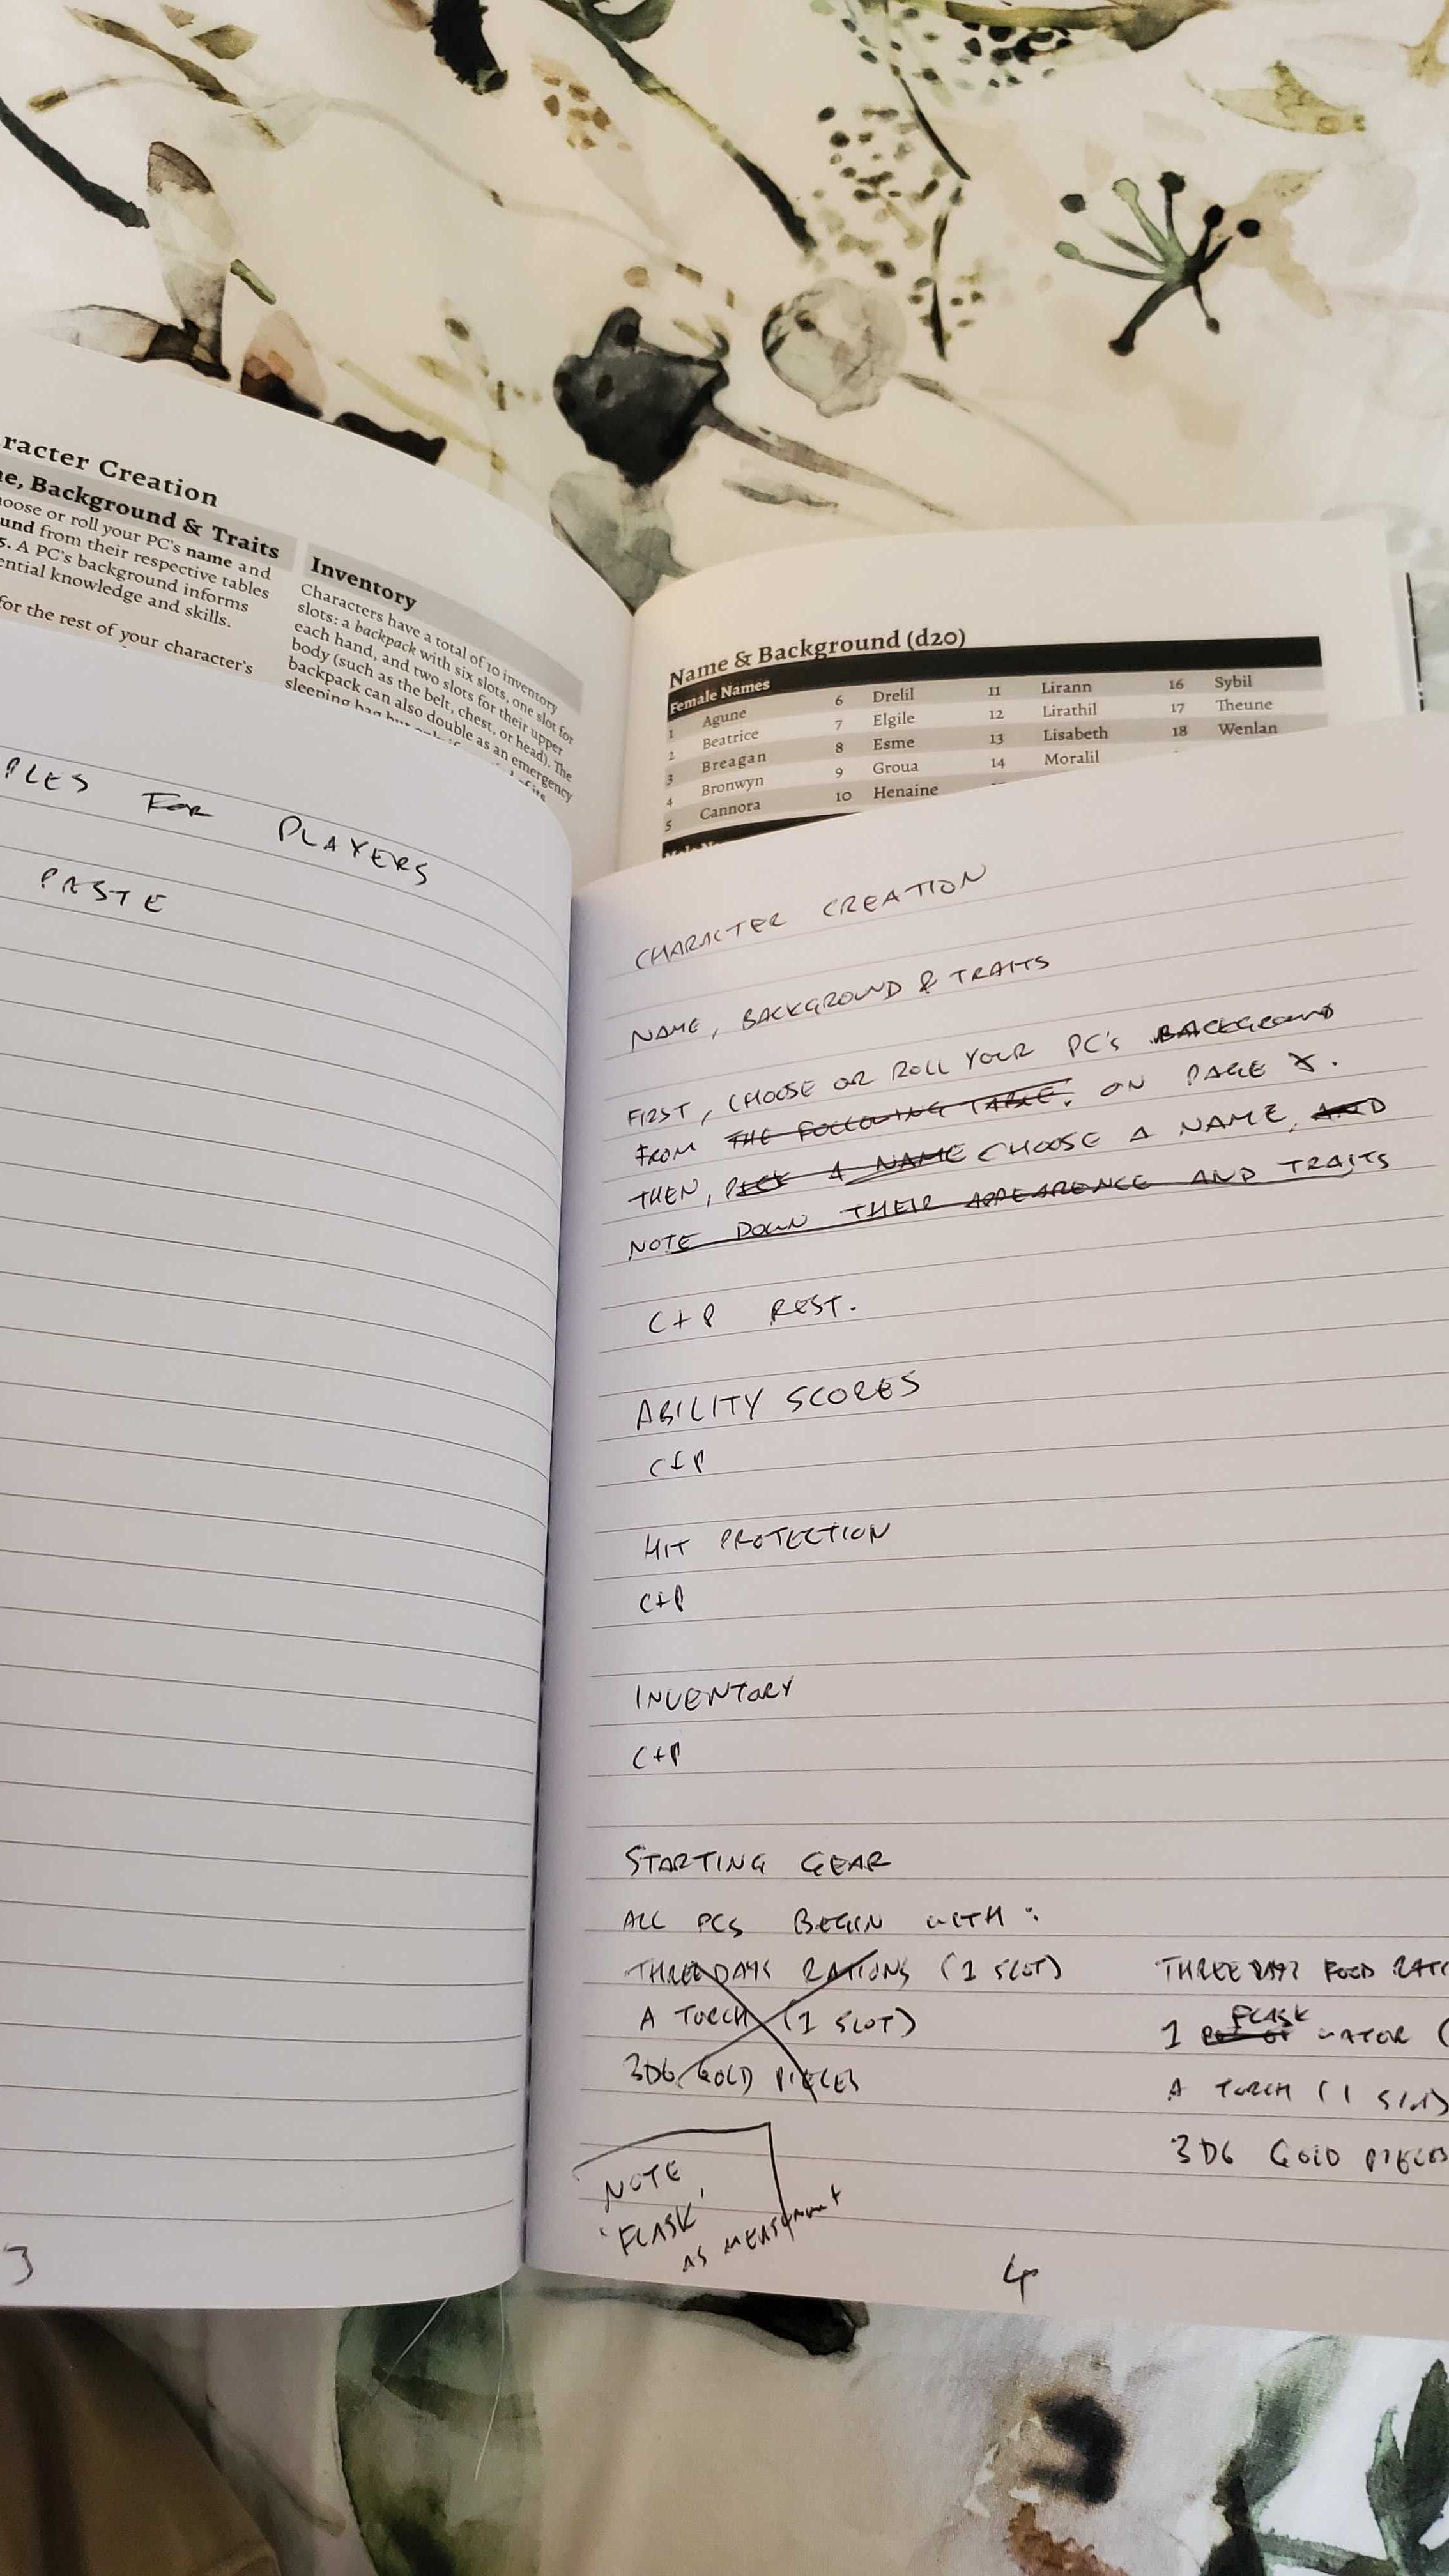 racter Creation
e, Background & Traits
oose or roll your PC's name and
und from their respective tables
5. A PC's background informs
ential knowledge and skills.
for the rest of your character's
Inventory
Characters have a total of 10 inventory
slots: a backpack with six slots, one slot for
each hand, and two slots for their upper
body (such as the belt, chest, or head). The
backpack can also double as an emergency
sleeping bag but
Name & Background (d20)
Female Names
1 Agune 6 Drelil 11 Lirann 16 Sybil
2 Beatrice 7 Elgile 12 Lirathil 17 Theune
3 Breagan 8 Esme 13 Lisabeth 18 Wenlan
4 Bronwyn 9 Groua 14 Moralil
5 Cannora 10 Henaine
PLES FOR PLAYERS
PASTE
3
CHARACTER CREATION
NAME, BACKGROUND & TRAITS
FIRST, CHOOSE OR ROLL YOUR PC'S BACKGROUND
FROM THE FOLLOWING TABLE. ON PAGE X.
THEN, PICK A NAME CHOOSE A NAME, AND
NOTE DOWN THEIR APPEARENCE AND TRAITS
C+P REST.
ABILITY SCORES
C+P
HIT PROTECTION
C+P
INVENTORY
C+P
STARTING GEAR
ALL PCS BEGIN WITH:
THREE DAYS RATIONS (1 SLOT)
A TORCH (1 SLOT)
3D6 GOLD PIECES
THREE DAYS FOOD RATI
FLASK
1 WATER (
A TORCH (1 SLOT)
3D6 GOLD PIECES
NOTE
'FLASK'
AS MEASURMENT
4